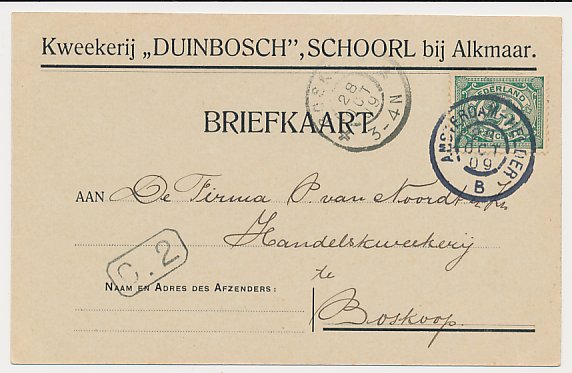 Kweekerij „DUINBOSCH”, SCHOORL bij Alkmaar.
NEDERLAND
BRIEFKAART
28
OCT
3-4N
AMSTERDAM-HELDER
OCT
09
B
AAN De Firma P. van Noordt
Handelskweekerij
C.2
te
NAAM EN ADRES DES AFZENDERS:
Boskoop.